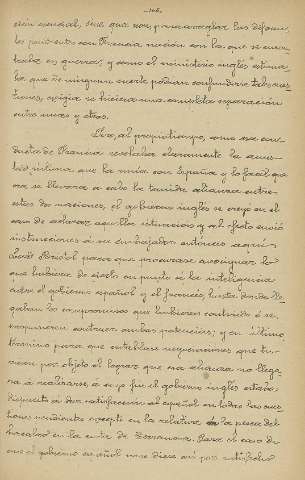 -166-
sion esencial, sino que son, para arreglar las diferen-
tes pendientes con Francia nación con la que se encon-
traba en guerra, y como el ministerio inglés estima-
ba que de ninguna suerte podían confundirse tales cues-
tiones, exigía se hiciera una completa separación
entre unas y otras.
Pero, al propio tiempo, como esa con-
ducta de Francia revelaba claramente la amis-
tad íntima que la unía con España y lo fácil que
era se llevara a cabo la temida alianza entre
estas dos naciones, el gobierno inglés se creyó en el
caso de aclarar aquella situación y al efecto envió
instrucciones á su embajador entonces aquí
Lord Bristol para que procurase averiguar lo
que hubiera de cierto en punto a la inteligencia
entre el gobierno español y el francés, hasta donde lle-
gaban los compromisos que hubieran contraído ó se
propusieran contraer ambas potencias; y en último
término para que entablase negociaciones que tu-
vieran por objeto el lograr que esa alianza no llega-
ra á realizarse, á cuyo fin el gobierno inglés estaba
dispuesto á dar satisfacción al español en todas las cues-
tiones pendientes excepto en la relativa á la pesca del
bacalao en la costa de Terranova. Para el caso de
que el gobierno español no se diese así por satisfecho